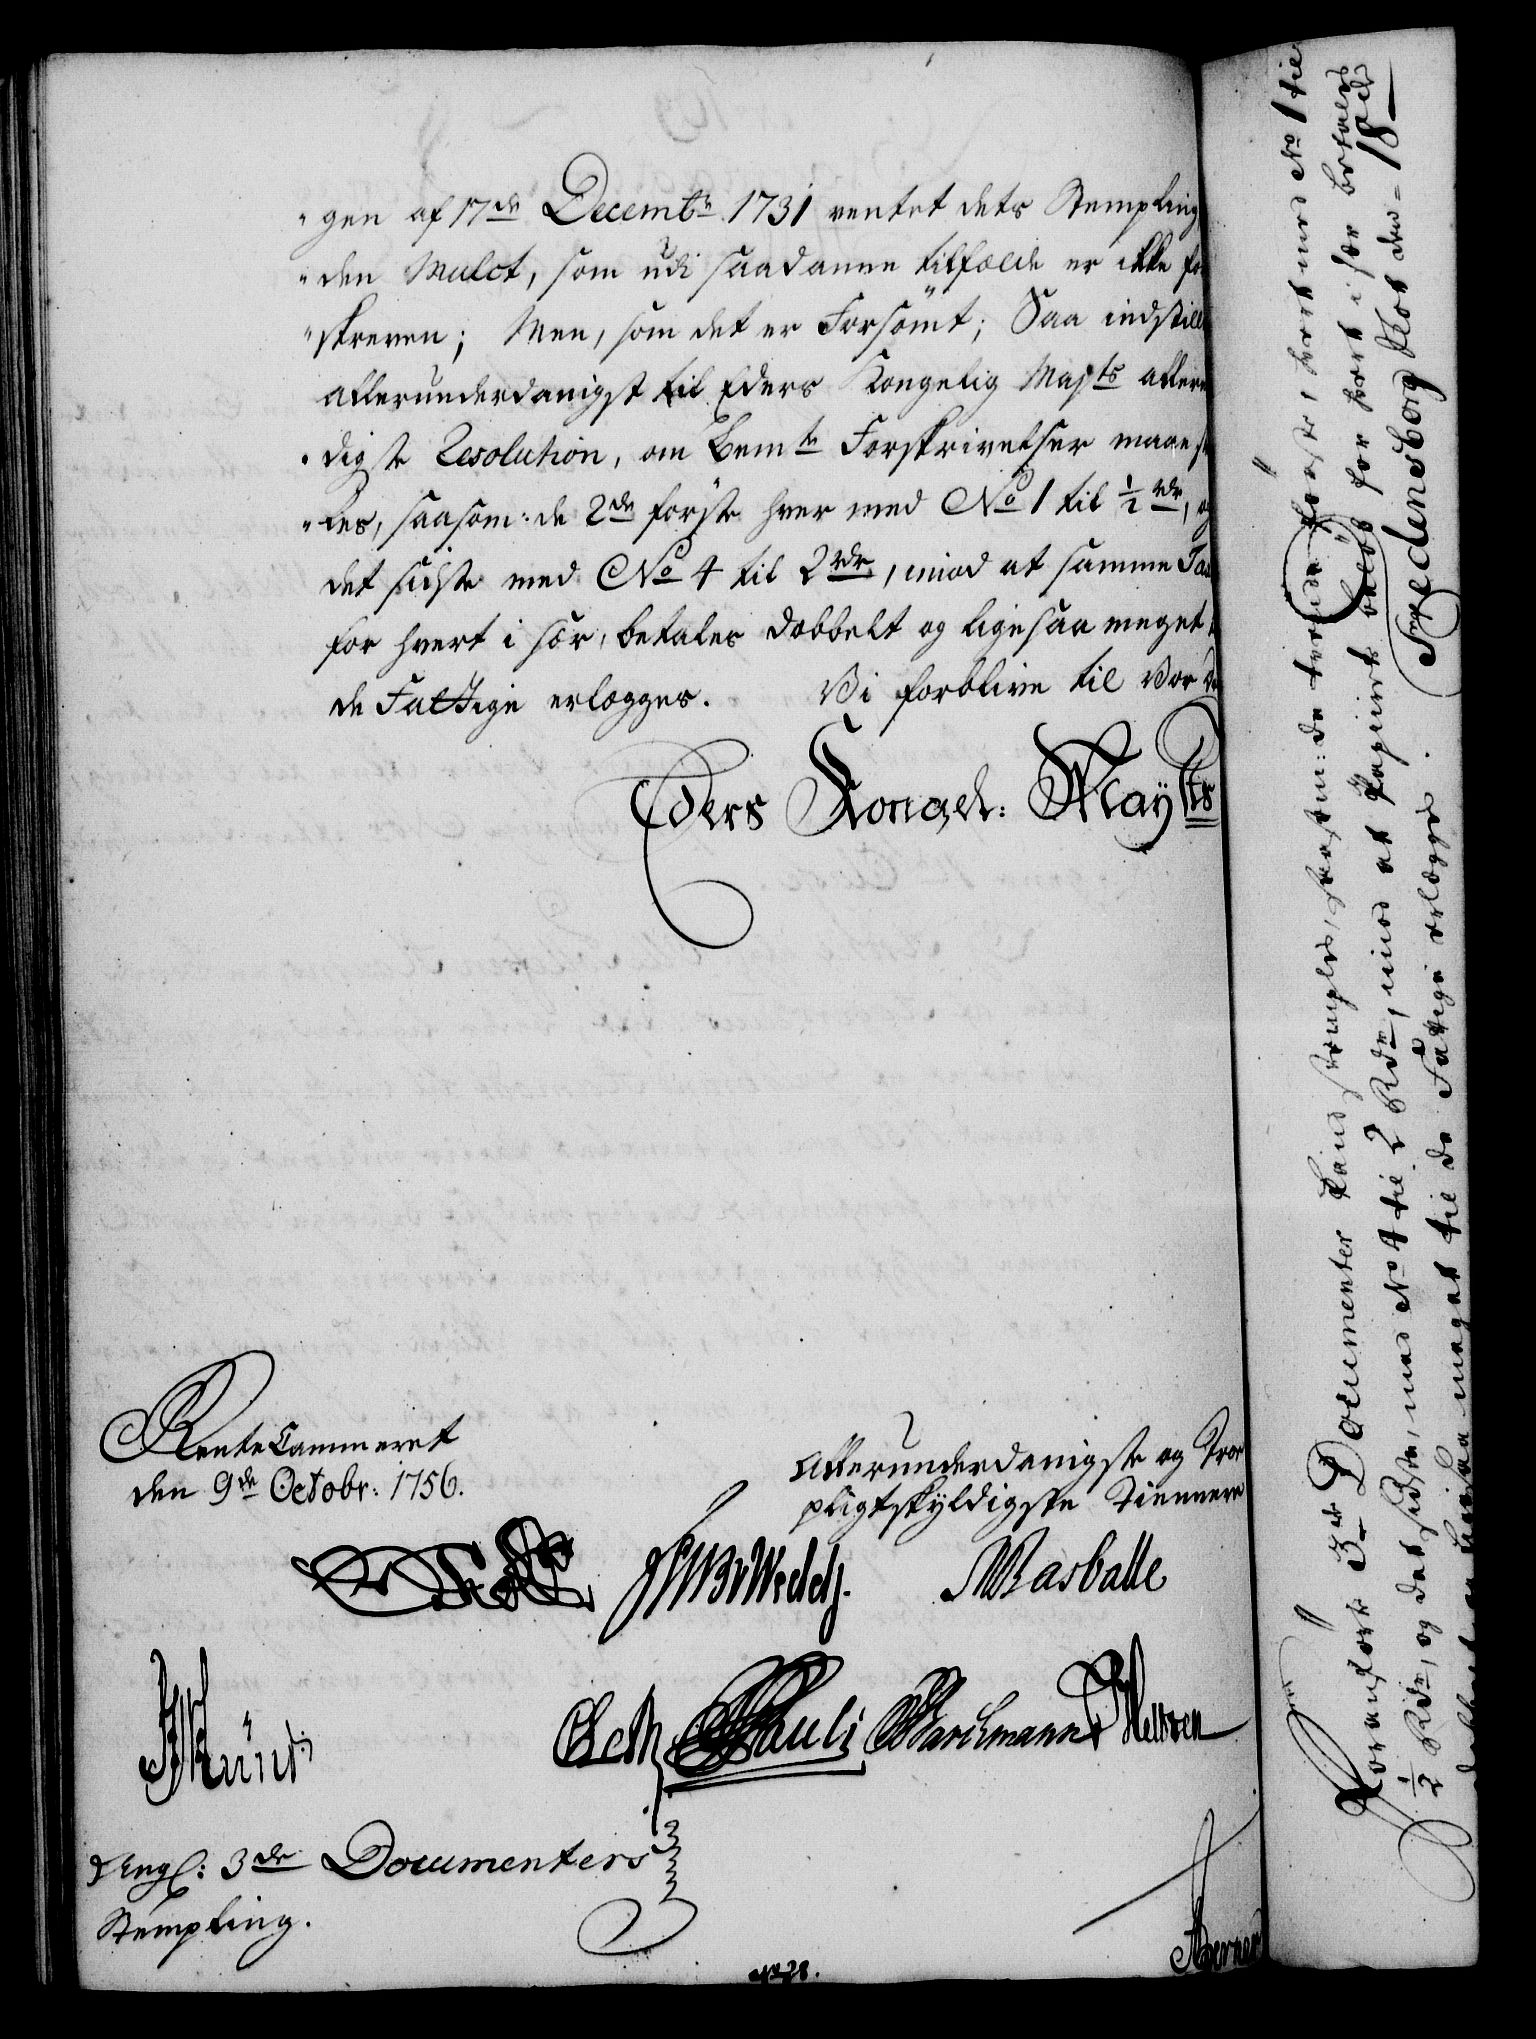 gen af 17de Decembr 1731 ventet dets Stempling
den Mulct, som udi saadanne tilfælde er ikke
skreven; Men, som det er Forsömt; Saa indstill
allerunderdanigst til Eders Kongelig Majts aller
digste Resolution, om Bemte Forskrivelser maae
les, saasom: de 2de förste hver med No 1 til ½ rdr, og
det sidste med No 4 til 2 rdr, imod at samme
for hvert i sær, betales dobbelt og ligesaa meget
de Fattige erlægges. Vi forblive til Vor
Eders Kongel: Mayts
RenteCammeret
den 9de Octobr: 1756.
Allerunderdanigste og Troe
pligtskyldigste Tiennere
Rasballe
Pauli Barchmann
Angl: 3de Documenters
Stempling.
No 28.
Foranförte 3de Documenter stemples, saasom: de tvende förste, hvert med No 1 til
½ Rdr, og det sidste, med No 4 til 2 Rdr, imod at Papiirets belöb for hvert i sær betales
dobbelt og ligesaa meget til de Fattige erlægges.
Fredensborg Slot den 18